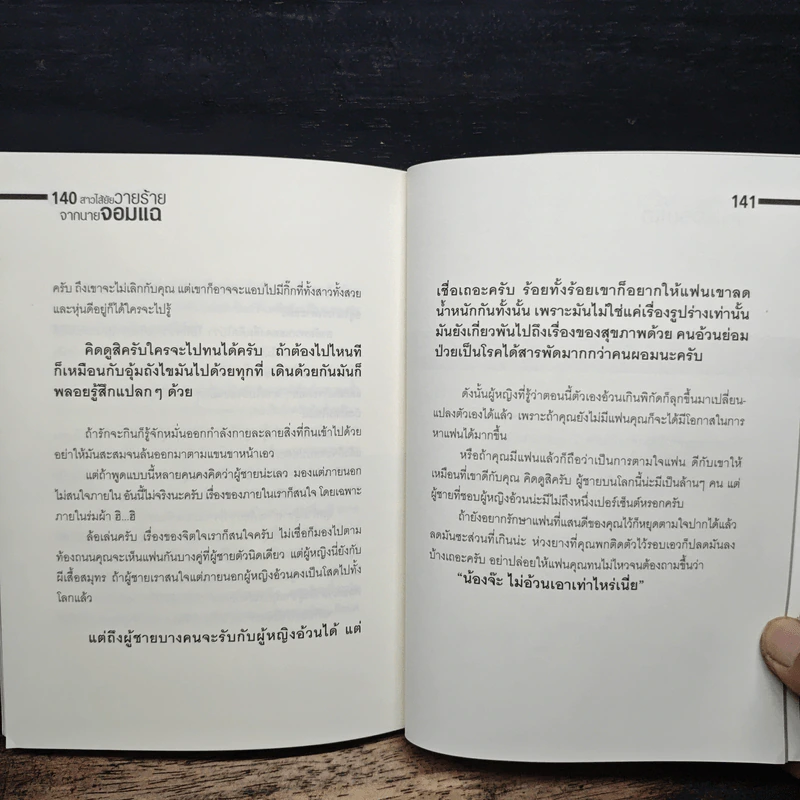 140 สาวไส้ยัยวายร้าย
จากนายจอมแฉ
ครับ ถึงเขาจะไม่เลิกกับคุณ แต่เขาก็อาจจะแอบไปมีกิ๊กที่ทั้งสาวทั้งสวย
และหุ่นดีอยู่ก็ได้ใครจะไปรู้
คิดดูสิครับใครจะไปทนได้ครับ ถ้าต้องไปไหนที
ก็เหมือนกับอุ้มถังไขมันไปด้วยทุกที่ เดินด้วยกันมันก็
พลอยรู้สึกแปลกๆ ด้วย
ถ้ารักจะกินก็รู้จักหมั่นออกกำลังกายละลายสิ่งที่กินเข้าไปด้วย
อย่าให้มันสะสมจนล้นออกมาตามแขนขาหน้าเอว
แต่ถ้าพูดแบบนี้หลายคนคงคิดว่าผู้ชายน่ะเลว มองแต่ภายนอก
ไม่สนใจภายใน อันนี้ไม่จริงนะครับ เรื่องของภายในเราก็สนใจ โดยเฉพาะ
ภายในร่มผ้า ฮิ...ฮิ
ล้อเล่นครับ เรื่องของจิตใจเราก็สนใจครับ ไม่เชื่อก็มองไปตาม
ท้องถนนคุณจะเห็นแฟนกันบางคู่ที่ผู้ชายตัวนิดเดียว แต่ผู้หญิงนี่ยังกับ
ผีเสื้อสมุทร ถ้าผู้ชายเราสนใจแต่ภายนอกผู้หญิงอ้วนคงเป็นโสดไปทั้ง
โลกแล้ว
แต่ถึงผู้ชายบางคนจะรับกับผู้หญิงอ้วนได้ แต่
141
เชื่อเถอะครับ ร้อยทั้งร้อยเขาก็อยากให้แฟนเขาลด
น้ำหนักกันทั้งนั้น เพราะมันไม่ใช่แค่เรื่องรูปร่างเท่านั้น
มันยังเกี่ยวพันไปถึงเรื่องของสุขภาพด้วย คนอ้วนย่อม
ป่วยเป็นโรคได้สารพัดมากกว่าคนผอมนะครับ
ดังนั้นผู้หญิงที่รู้ว่าตอนนี้ตัวเองอ้วนเกินพิกัดก็ลุกขึ้นมาเปลี่ยน-
แปลงตัวเองได้แล้ว เพราะถ้าคุณยังไม่มีแฟนคุณก็จะได้มีโอกาสในการ
หาแฟนได้มากขึ้น
หรือถ้าคุณมีแฟนแล้วก็ถือว่าเป็นการตามใจแฟน ดีกับเขาให้
เหมือนที่เขาดีกับคุณ คิดดูสิครับ ผู้ชายบนโลกนี้น่ะมีเป็นล้านๆ คน แต่
ผู้ชายที่ชอบผู้หญิงอ้วนน่ะมีไม่ถึงหนึ่งเปอร์เซ็นต์หรอกครับ
ถ้ายังอยากรักษาแฟนที่แสนดีของคุณไว้ก็หยุดตามใจปากได้แล้ว
ลดมันซะส่วนที่เกินน่ะ ห่วงยางที่คุณพกติดตัวไว้รอบเอวก็ปลดมันลง
บ้างเถอะครับ อย่าปล่อยให้แฟนคุณทนไม่ไหวจนต้องถามขึ้นว่า
“น้องจ๊ะ ไม่อ้วนเอาเท่าไหร่เนี่ย”